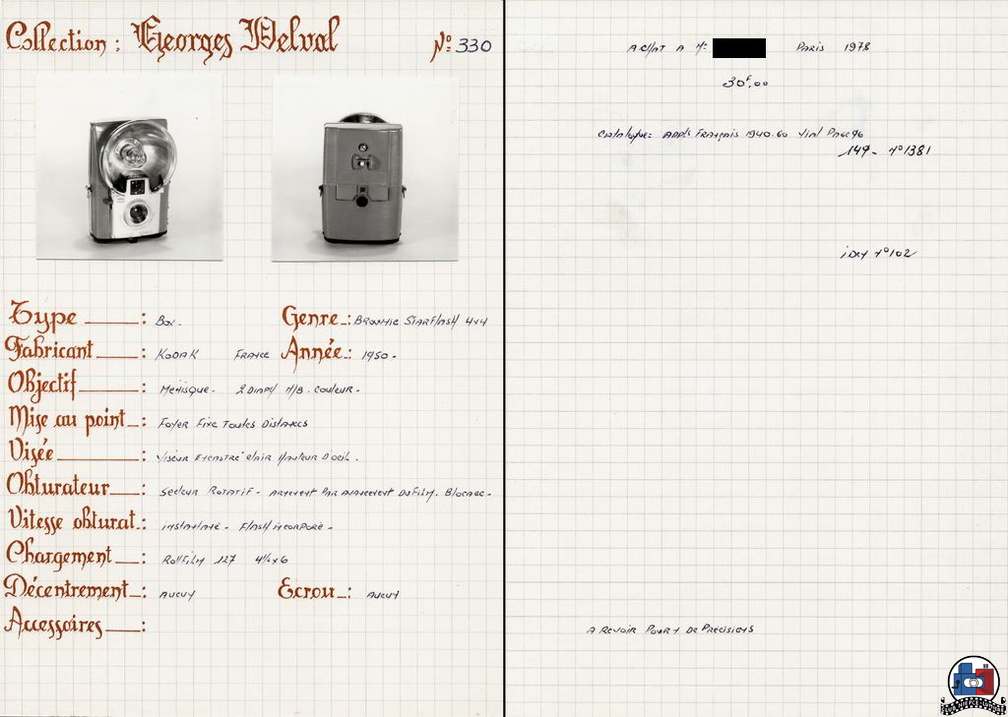 Collection : Georges Delval
N° 330
Type : Box.
Genre : Brownie Starflash 4x4
Fabricant : Kodak France
Année : 1950.
Objectif : Ménisque. 2 Diaph N/B. Couleur.
Mise au point : Foyer Fixe Toutes Distances
Visée : Viseur Encastré Clair Hauteur D'oeil.
Obturateur : Secteur Rotatif. Armement Par avancement Du Film. Blocage.
Vitesse obturat. : instantané. Flash incorporé.
Chargement : RollFilm 127
Décentrement : Aucun
Ecrou : Aucun
Accessoires :
Achat A Mr Paris 1978
30F.00
Catalogue: Français 1940.60 Vial Page 96
149 - N°1381
N°102
A Revoir Pour + De Précisions